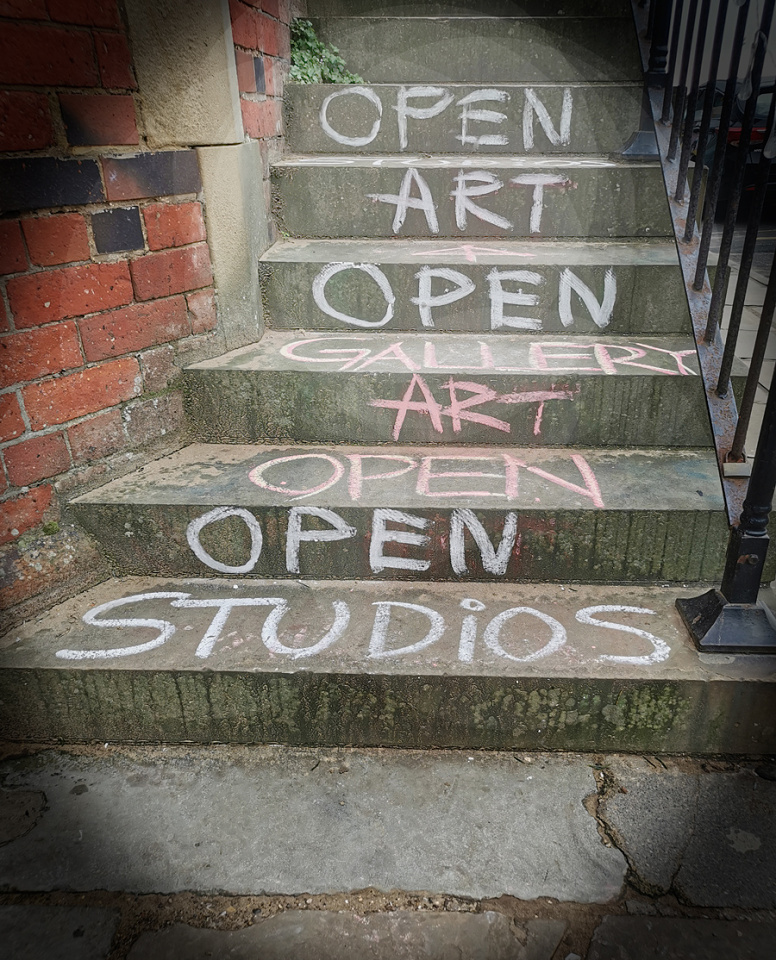 OPEN
ART
OPEN
GALLERY
ART
OPEN
OPEN
STUDiOS